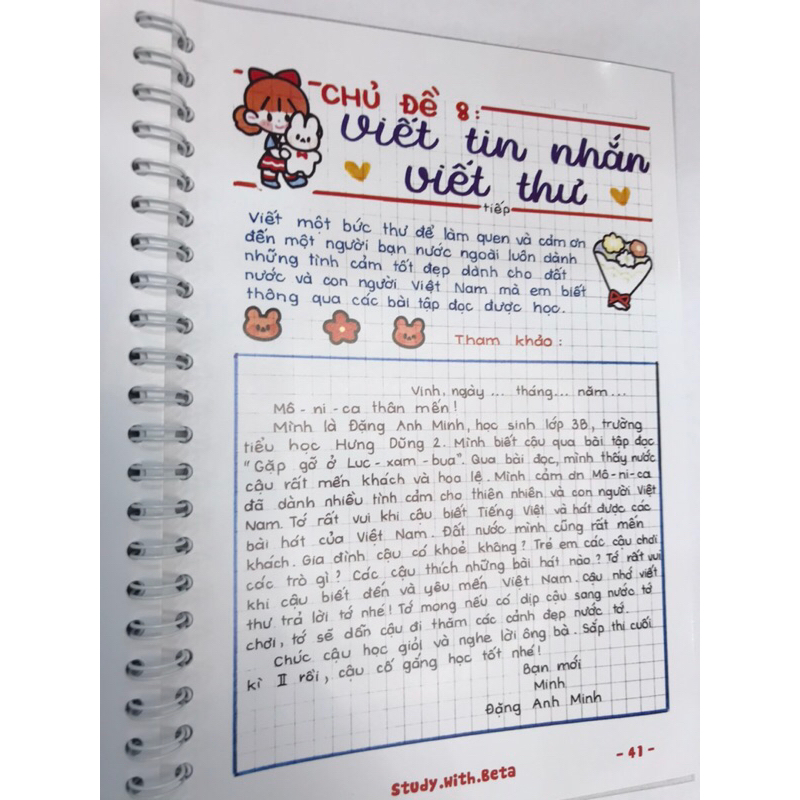 CHỦ ĐỀ 8:
viết tin nhắn
viết thư
tiếp
Viết một bức thư để làm quen và cảm ơn
đến một người bạn nước ngoài luôn dành
những tình cảm tốt đẹp dành cho đất
nước và con người Việt Nam mà em biết
thông qua các bài tập đọc được học.
Tham khảo:
Vinh, ngày ... tháng... năm...
Mô - ni - ca thân mến!
Mình là Đặng Anh Minh, học sinh lớp 3B, trường
tiểu học Hưng Dũng 2. Mình biết cậu qua bài tập đọc
"Gặp gỡ ở Luc - xam - bua". Qua bài đọc, mình thấy nước
cậu rất mến khách và hoa lệ. Mình cảm ơn Mô-ni-ca
đã dành nhiều tình cảm cho thiên nhiên và con người Việt
Nam. Tớ rất vui khi cậu biết Tiếng Việt và hát được các
bài hát của Việt Nam. Đất nước mình cũng rất mến
khách. Gia đình cậu có khoẻ không? Trẻ em các cậu chơi
các trò gì? Các cậu thích những bài hát nào? Tớ rất vui
khi cậu biết đến và yêu mến Việt Nam. cậu nhớ viết
thư trả lời tớ nhé! Tớ mong nếu có dịp cậu sang nước tớ
chơi, tớ sẽ dẫn cậu đi thăm các cảnh đẹp nước tớ.
Chúc cậu học giỏi và nghe lời ông bà. Sắp thi cuối
kì II rồi, cậu cố gắng học tốt nhé!
Bạn mới
Minh
Đặng Anh Minh
- 41 -
Study.With.Beta